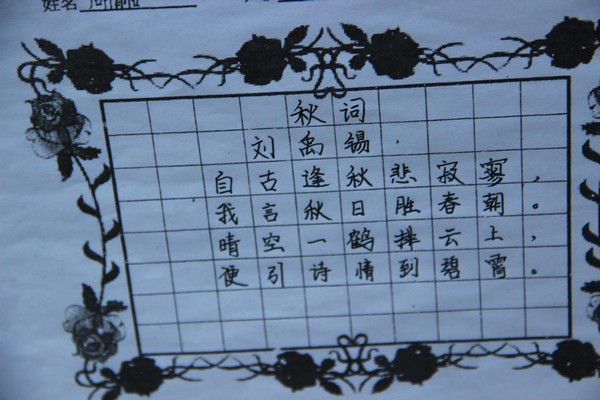 姓名
秋词
刘禹锡
自古逢秋悲寂寥，
我言秋日胜春朝。
晴空一鹤排云上，
便引诗情到碧霄。